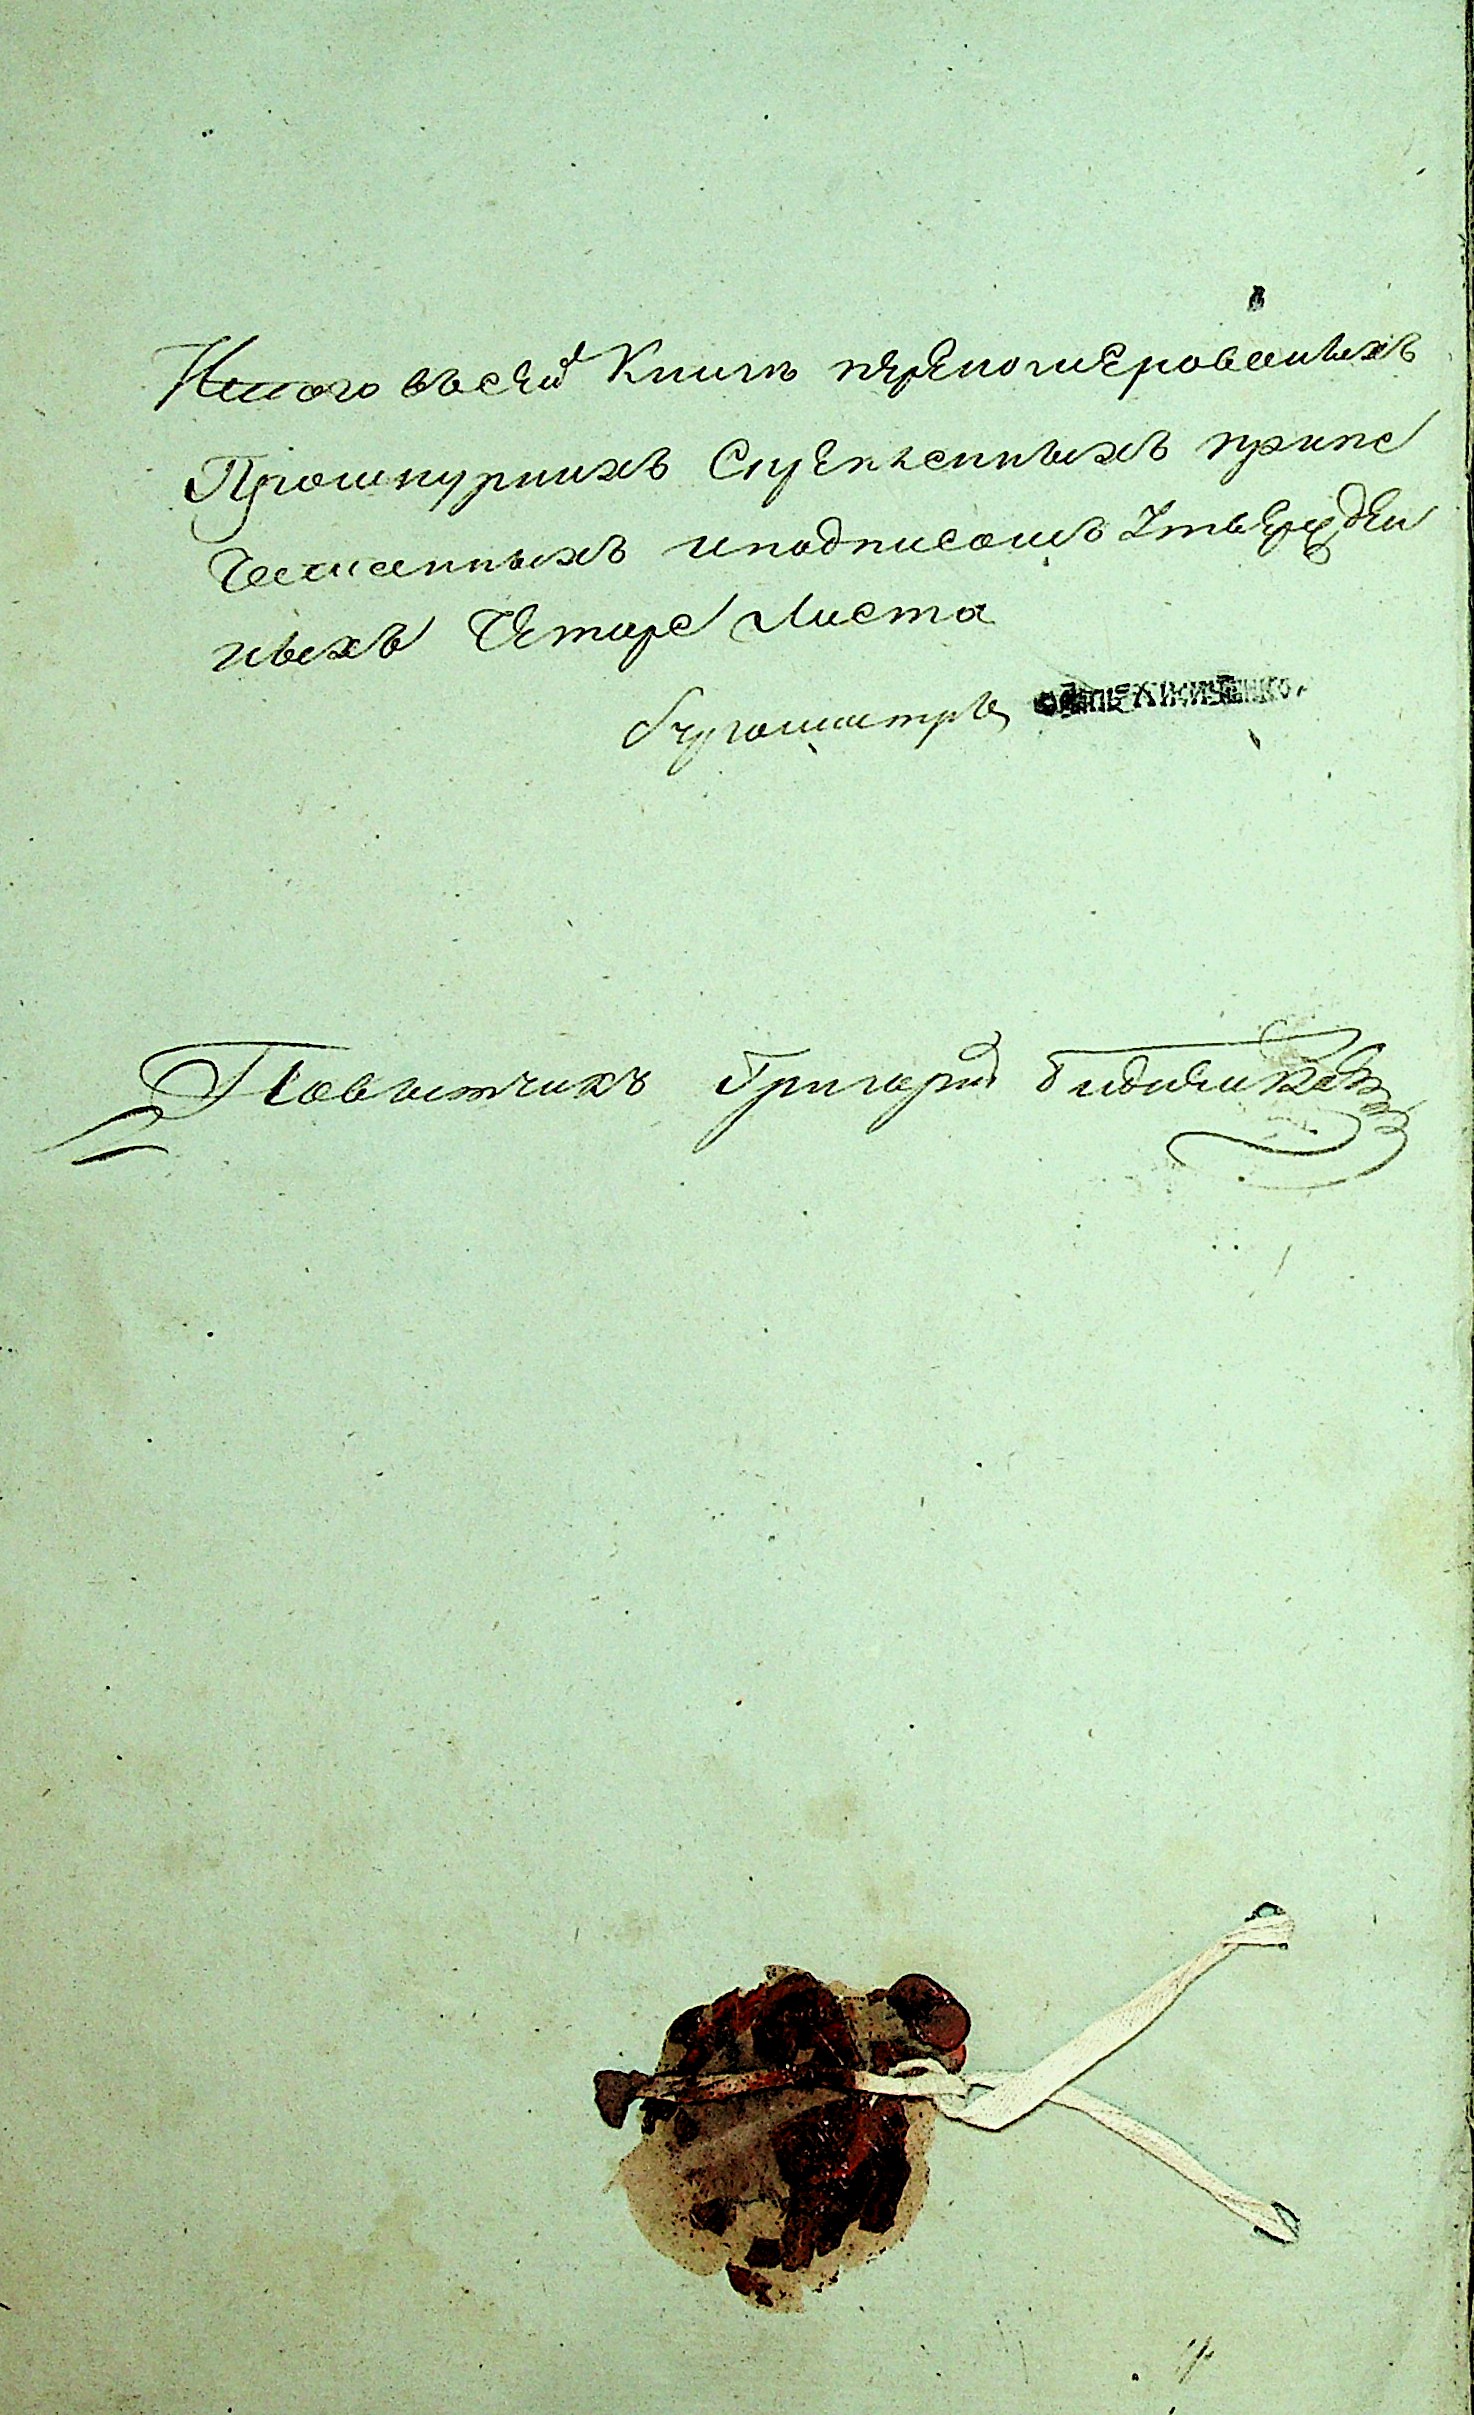 Итого въсей Книги перономерованыхъ
Прошнурнихъ Скрепленныхъ припе
чатанныхъ и подписомъ Утвержден
ныхъ Четыре Листа
бургомистръ
Повытчикъ Григорий